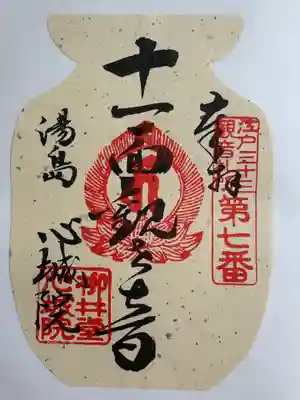 奉拝
江戸三十三
観音
第七番
十一面観世音
湯島
心城院
柳井堂
心城院